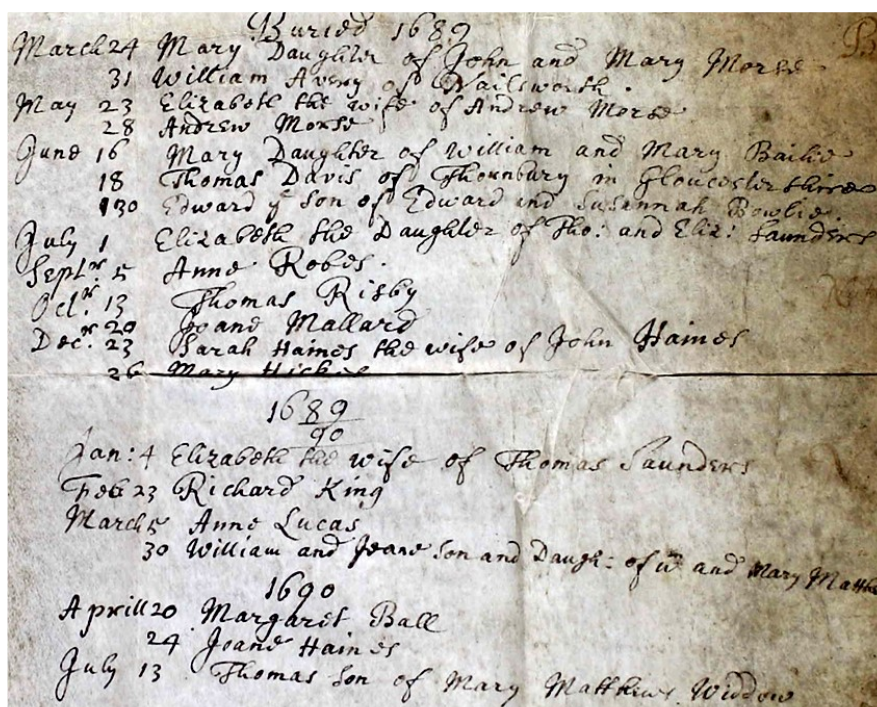 Buried 1689
March 24 Mary Daughter of John and Mary Morse
31 William Avery of Nailsworth.
May 23 Elizabeth the wife of Andrew Morse
28 Andrew Morse
June 16 Mary Daughter of William and Mary Bailie
18 Thomas Davis of Thornbury in Gloucestershire
30 Edward yᵉ son of Edward and Susannah Bowlie.
July 1 Elizabeth the Daughter of Tho: and Eliz: Saunders
Septr. 5 Anne Robes.
Octr. 13 Thomas Risby
20 Joane Mallard
Decr. 23 Sarah Haines the wife of John Haines
26 Mary
1689
90
Jan: 4 Elizabeth the wife of Thomas Saunders
Feb 23 Richard King
March 5 Anne Lucas
30 William and Jeane son and Daugh: of Wm and Mary
1690
Aprill 20 Margaret Ball
24 Joane Haines
July 13 Thomas son of Mary Matthews Widdow